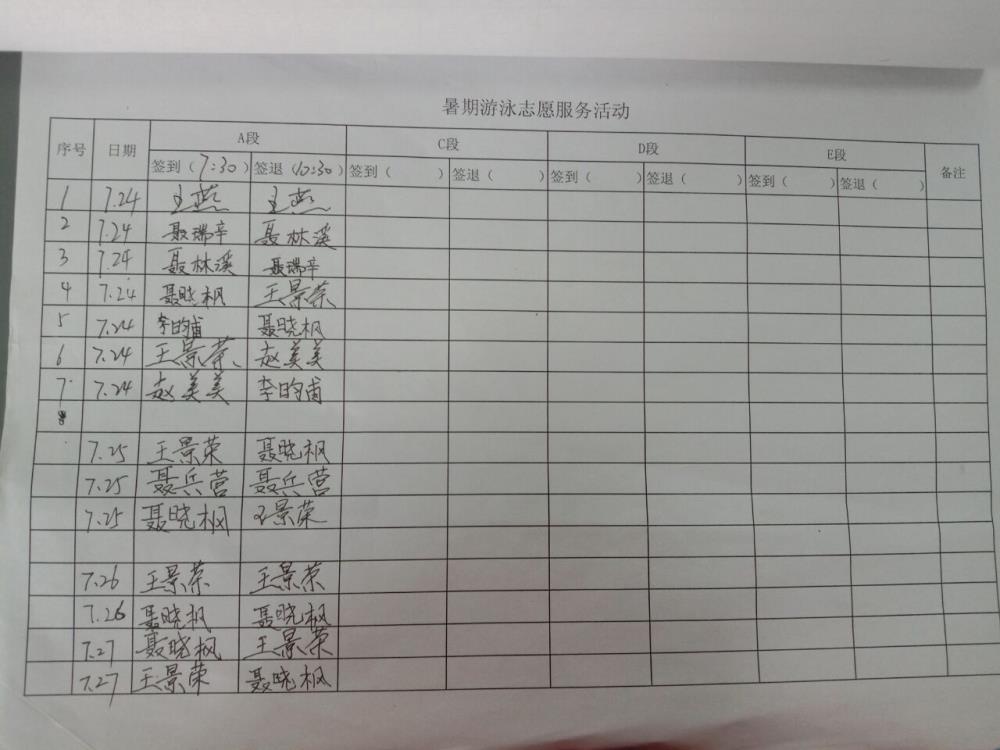 暑期游泳志愿服务活动
序号 日期 A段 C段 D段 E段 备注
签到（7:30） 签退（10:30） 签到（ ） 签退（ ） 签到（ ） 签退（ ） 签到（ ） 签退（ ）
1 7.24 王燕 王燕
2 7.24 聂瑞辛 聂林溪
3 7.24 聂林溪 聂瑞辛
4 7.24 聂晓枫 王景荣
5 7.24 李昀甫 聂晓枫
6 7.24 王景荣 赵美美
7 7.24 赵美美 李昀甫
8
7.25 王景荣 聂晓枫
7.25 聂兵营 聂兵营
7.25 聂晓枫 王景荣
7.26 王景荣 王景荣
7.26 聂晓枫 聂晓枫
7.27 聂晓枫 王景荣
7.27 王景荣 聂晓枫